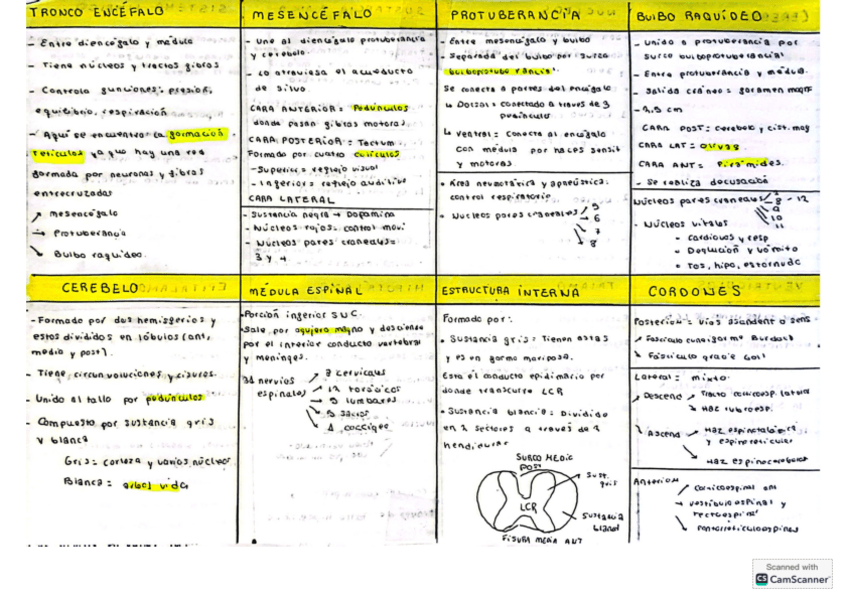 TRONCO ENCÉFALO
- Entre diencéfalo y médula
- Tiene núcleos y tractos fibros
- Controla funciones: presión,
equilibrio, respiración
- Aquí se encuentra la formación
reticular ya que hay una red
formada por neuronas y fibras
entrecruzadas
↗ mesencéfalo
→ Protuberancia
↘ Bulbo raquídeo.
MESENCÉFALO
- Une al diencéfalo protuberancia
y cerebelo.
- Lo atraviesa el acueducto
de silvo.
CARA ANTERIOR = Pedúnculos
donde pasan fibras motoras.
CARA POSTERIOR = Tectum.
Formado por cuatro
- Superior = reflejo visual
- Inferior = reflejo auditivo
CARA LATERAL
- Sustancia negra → Dopamina
- Núcleos rojos: control movi
- Núcleos pares craneales =
3 y 4
PROTUBERANCIA
- Entre mesencéfalo y bulbo
- Separada del bulbo por surco
bulboprotuberancial.
Se conecta a partes del encéfalo
↳ Dorsal = conectado a través de 3
pedúnculo
↳ Ventral = conecta al encéfalo
con médula por haces sensit
y motoras.
• Área neumotáxica y apnéustica:
control respiratorio
• Núcleos pares craneales
5
6
7
8
BULBO RAQUÍDEO
- Unido a protuberancia por
surco bulboprotuberancial
- Entre protuberancia y médula.
- Salida cráneo = foramen magn
CARA POST = cerebelo y cist. mag
CARA LAT = olivas
CARA ANT = Pirámides.
- Se realiza decusación
Núcleos pares craneales
8 - 12
9
10
11
- Núcleos vitales
• Cardiovas y resp
• Deglución y vómito
• Tos, hipo, estornudo
CEREBELO
- Formado por dos hemisferios y
estos divididos en lóbulos (ant,
medio y post).
- Tiene circunvoluciones y cisuras.
- Unido al tallo por pedúnculos
- Compuesto por sustancia gris
y blanca
Gris = corteza y varios núcleos
Blanca = arbol vida
MÉDULA ESPINAL
- Porción inferior SNC.
- Sale por agujero magno y desciende
por el interior conducto vertebral
y meninges.
31 nervios
espinales
8 cervicales
12 torácicos
5 lumbares
5 sacros
1 coccígeo
ESTRUCTURA INTERNA
Formado por:
• Sustancia gris: Tienen astas
y es en forma mariposa.
Esta el conducto epidimario por
donde transcurre LCR
• Sustancia blanca: Dividido
en 2 sectores a través de 2
hendiduras
SURCO MEDIO
POST
Sust.
gris
LCR
Sustancia
blanca
FISURA MEDIA ANT
CORDONES
Posterior = vías ascendent o sens
↗ Fascículo cuneiforme Burdach
↘ Fascículo
Lateral = mixto
Descend
Tracto corticoesp. lateral
Haz rubroesp.
Ascend
Haz espinotalámico
y espinoreticular
Haz espinocerebeloso
Anterior
Corticoespinal ant
vestibuloespinal y
tectoespinal
Scanned with
CS CamScanner